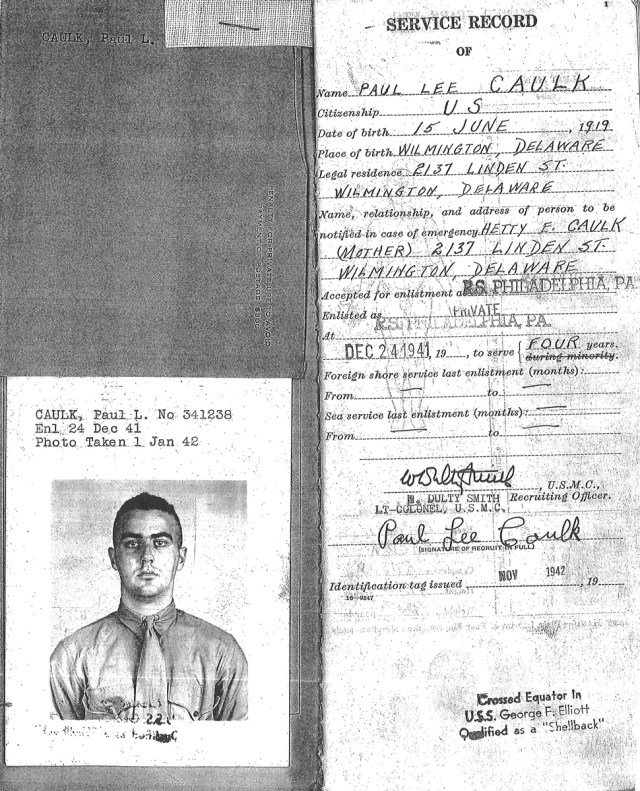 CAULK, Paul L.
PENALTY FOR PRIVATE USE TO AVOID
PAYMENT OF POSTAGE, $300
CAULK, Paul L. No 341238
Enl 24 Dec 41
Photo Taken 1 Jan 42
1
SERVICE RECORD
OF
Name PAUL LEE CAULK
Citizenship US
Date of birth 15 JUNE, 1919
Place of birth WILMINGTON, DELAWARE
Legal residence 2137 LINDEN ST.
WILMINGTON, DELAWARE
Name, relationship, and address of person to be
notified in case of emergency HETTY E. CAULK
(MOTHER) 2137 LINDEN ST.
WILMINGTON, DELAWARE
Accepted for enlistment at R.S. PHILADELPHIA, PA.
Enlisted as PRIVATE
At R.S. PHILADELPHIA, PA.
DEC 24 1941, 19, to serve { FOUR years.
during minority.
Foreign shore service last enlistment (months):
From to
Sea service last enlistment (months):
From to
W Dulty Smith, U.S.M.C.,
W. DULTY SMITH Recruiting Officer.
LT-COLONEL, U.S.M.C.
Paul Lee Caulk
(SIGNATURE OF RECRUIT IN FULL)
Identification tag issued NOV 1942, 19
Crossed Equator In
U.S.S. George F. Elliott
Qualified as a "Shellback"